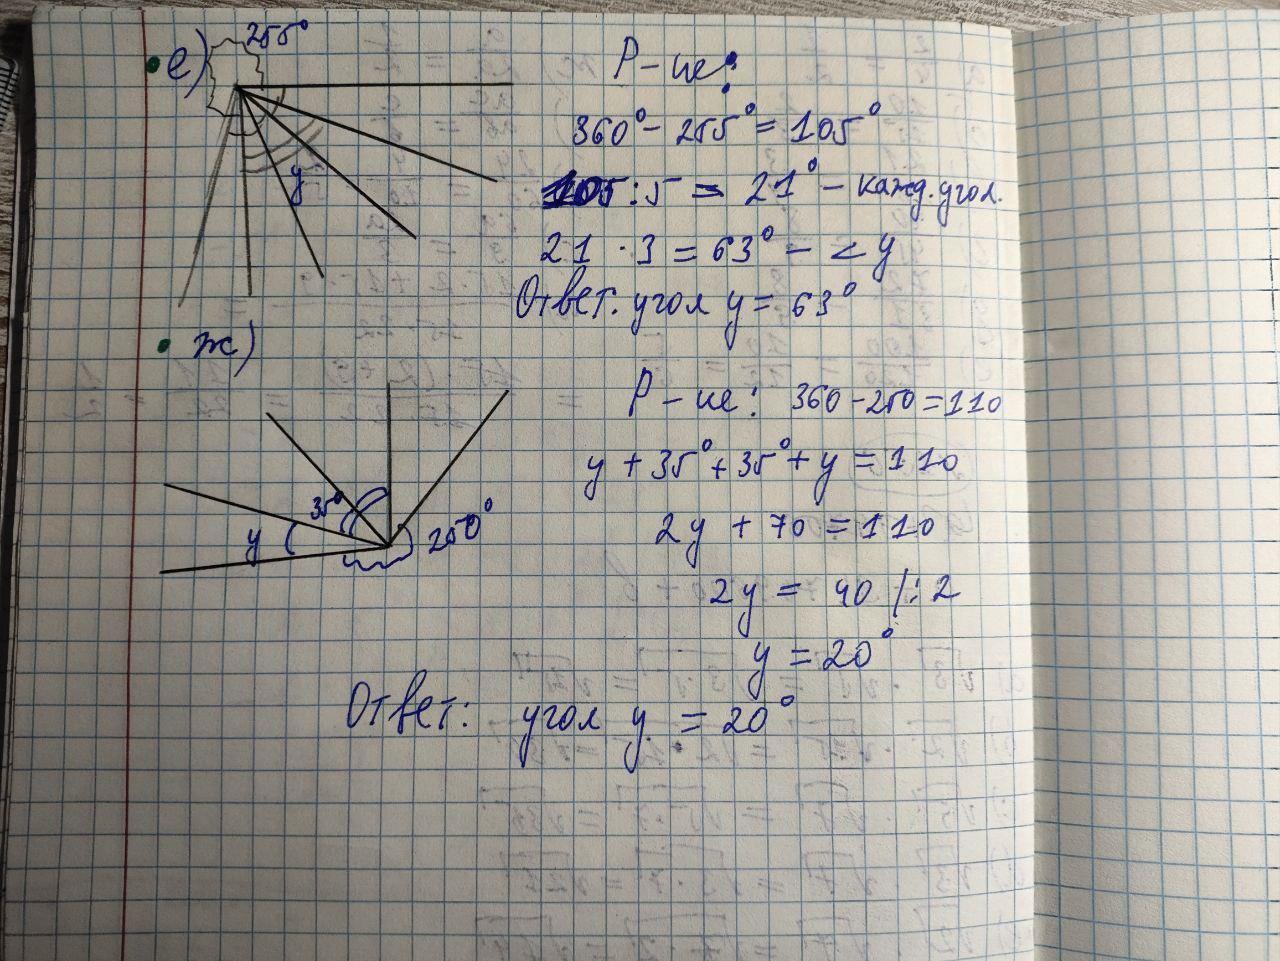 е) 255°
Р-ие:
360° - 255° = 105°
105 : 5 = 21° - кажд. угол.
у
21 · 3 = 63° - < у
Ответ. угол у = 63°
ж)
Р-ие: 360 - 250 = 110
у + 35° + 35° + у = 110
35°
у 250°
2у + 70 = 110
2у = 40 /: 2
у = 20°
Ответ: угол у = 20°